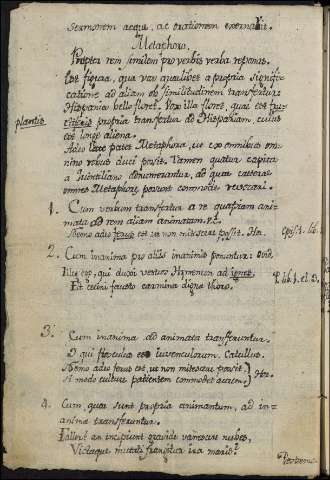 sermonem aequi, ac orationem exornabit.
Metaphora.
Propter rem similem pro verbis verba reponit.
Est figura, qua vox quaelibet a propria signifi-
catione ad aliam ob similitudinem transfertur
Hispania bello floret. Vox illa floret, quae est
plantis
propria transfertur ad Hispaniam, cuius
est longe aliena.
Adeo late patet Metaphora, ut ex omnibus om-
nino rebus duci possit. Tamen quatuor capita
a Quintiliano denumerantur, ad quae caeterae
omnes Metaphorae possunt commode revocari.
1. Cum verbum transfertur a re quapiam ani-
mata ad rem aliam animatam.
Nemo adeo ferus est ut non mitescere possit. Hor.
Epist. lib. 1.
2. Cum inanima pro aliis inanimis ponuntur: Ovid.
Ille ego, qui duxi vestros Hymenon ad ignes,
P. lib. 1. el. 2.
Et cecini fausto carmina digna thoro.
3. Cum inanima ad animata transferuntur.
O qui flosculus es Iuventiorum. Catullus.
Nemo adeo ferus est, ut non mitescere possit.) Hor.
Si modo culturae patientem commodet aurem.)
4. Cum, quae sunt propria animantum, ad in-
anima transferuntur.
Fallor? an incipiunt gravidae vanescere nubes,
Victaque mutati frangitur ira maris?